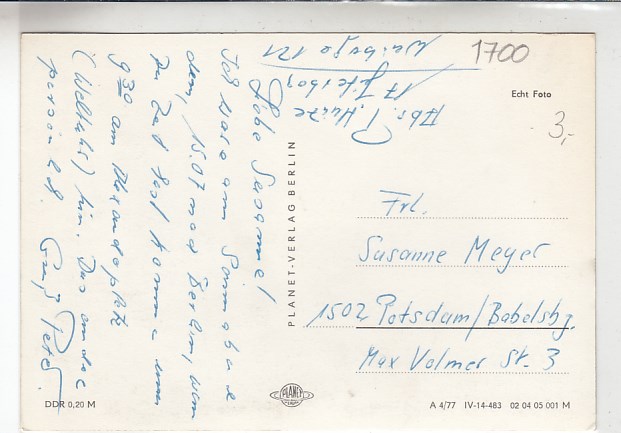 1700
Abs. P. Hinze
17 Jüterbog
Echt Foto
3,-
Liebe Susanne!
Ich war am Sonnabend
dem, 15.07 nach Berlin, wenn
du Zeit hast komme um
9³⁰ am Alexanderplatz
(Weltuhr) hin. Das andere
persönlich. Gruß Peter
PLANET-VERLAG BERLIN
Frl.
Susanne Meyer
1502 Potsdam/Babelsbg.
Max Volmer St. 3
DDR 0,20 M
PLANET
A 4/77 IV-14-483 02 04 05 001 M